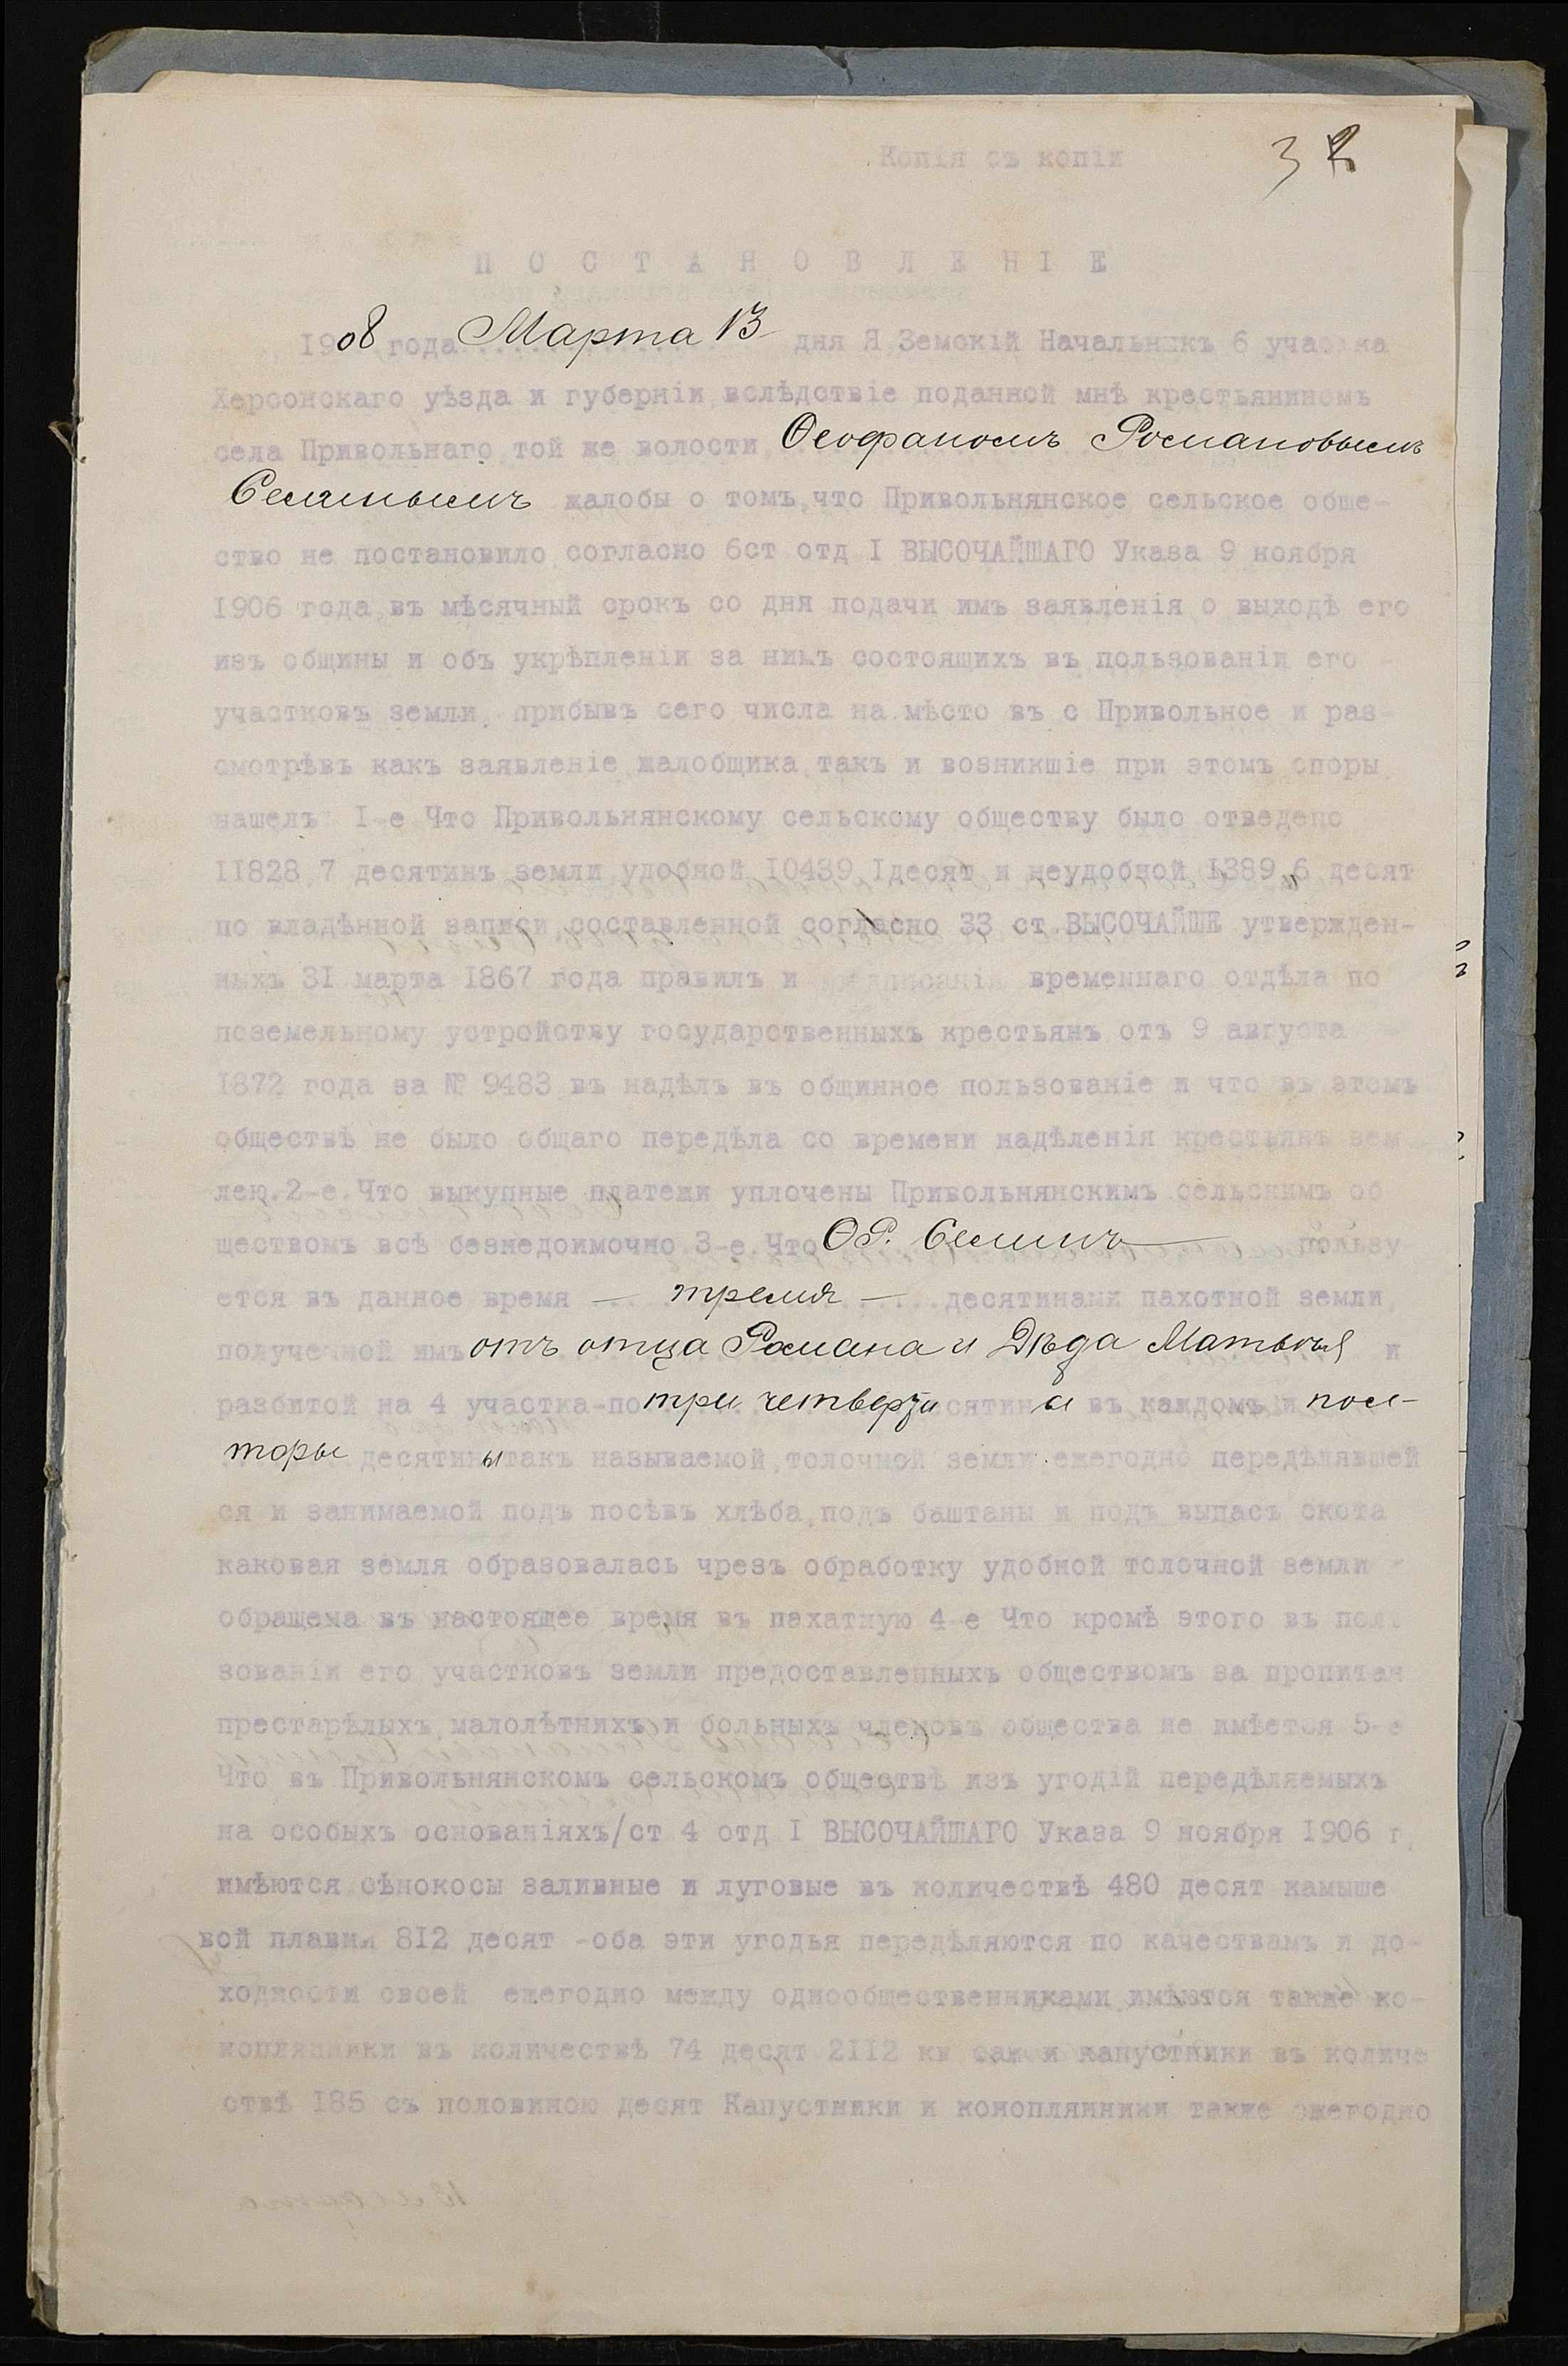 Копія съ копіи
32
ПОСТАНОВЛЕНІЕ
1908 года Марта 13 дня Я Земскій Начальникъ 6 участка
Херсонскаго уѣзда и губерніи вслѣдствіе поданной мнѣ крестьяниномъ
села Привольнаго той же волости Ѳеофаномъ Романовымъ
Семинымъ жалобы о томъ, что Привольнянское сельское обще-
ство не постановило согласно 6ст отд I ВЫСОЧАЙШАГО Указа 9 ноября
1906 года въ мѣсячный срокъ со дня подачи имъ заявленія о выходѣ его
изъ общины и объ укрѣпленіи за нимъ состоящихъ въ пользованіи его
участковъ земли, прибывъ сего числа на мѣсто въ с Привольное и раз-
смотрѣвъ какъ заявленіе жалобщика, такъ и возникшіе при этомъ споры
нашелъ I-е Что Привольнянскому сельскому обществу было отведено
11828,7 десятинъ земли удобной 10439,1десят и неудобной 1389,6 десят
по владѣнной записи, составленной согласно 33 ст.ВЫСОЧАЙШЕ утвержден-
ныхъ 31 марта 1867 года правилъ и предписанія временнаго отдѣла по
поземельному устройству государственныхъ крестьянъ отъ 9 августа
1872 года за № 9483 въ надѣлъ въ общинное пользованіе и что въ этомъ
обществѣ не было общаго передѣла со времени надѣленія крестьянъ зем
лею.2-е.Что выкупные платежи уплочены Привольнянскимъ сельскимъ об
ществомъ всѣ безнедоимочно 3-е Что Ѳ Р. Семинъ пользу
ется въ данное время — тремя — десятинами пахотной земли,
полученной имъ отъ отца Романа и Дѣда Матвѣя и
разбитой на 4 участка-по три четверти десятины въ каждомъ и пол-
торы десятины такъ называемой, толочной земли ежегодно передѣлявшей
ся и занимаемой подъ посѣвъ хлѣба, подъ баштаны и подъ выпасъ скота
каковая земля образовалась чрезъ обработку удобной толочной земли
обращена въ настоящее время въ пахатную 4-е Что кромѣ этого въ поль
зованіи его участковъ земли предоставленныхъ обществомъ за пропитан
престарѣлыхъ, малолѣтнихъ и больныхъ членовъ общества не имѣется 5-е
Что въ Привольнянскомъ сельскомъ обществѣ изъ угодій передѣляемыхъ
на особыхъ основаніяхъ/ст 4 отд I ВЫСОЧАЙШАГО Указа 9 ноября 1906 г.
имѣются сѣнокосы заливные и луговые въ количествѣ 480 десят камыше
вой плавни 812 десят -оба эти угодья передѣляются по качествамъ и до-
ходности своей ежегодно между однообщественниками, имѣются также ко-
коплянники въ количествѣ 74 десят 2112 кв саж и капустники въ количе
ствѣ 185 съ половиною десят Капустники и коноплянники также ежегодно